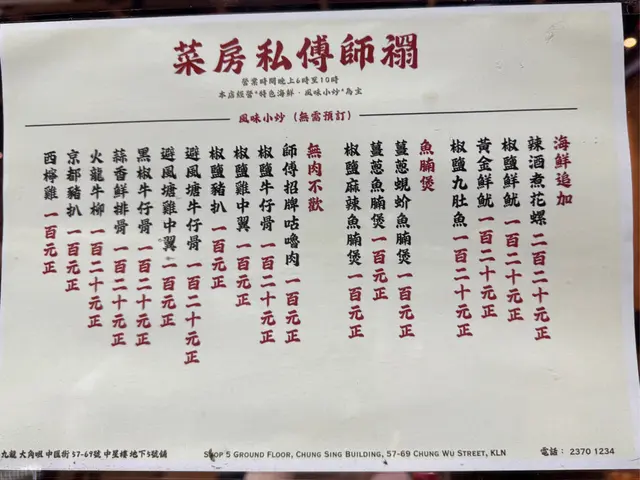 禤師傅私房菜
營業時間晚上6時至10時
本店經營"特色海鮮·風味小炒"為主
風味小炒(無需預訂)
海鮮追加
辣酒煮花螺 二百二十元正
椒鹽鮮魷 一百二十元正
黃金鮮魷 一百二十元正
椒鹽九肚魚 一百二十元正
魚腩煲
薑蔥蜆蚧魚腩煲 一百元正
薑蔥魚腩煲 一百元正
椒鹽麻辣魚腩煲 一百二十元正
無肉不歡
師傅招牌咕嚕肉 一百元正
椒鹽牛仔骨 一百二十元正
椒鹽雞中翼 一百元正
椒鹽豬扒 一百元正
避風塘牛仔骨 一百二十元正
避風塘雞中翼 一百元正
黑椒牛仔骨 一百二十元正
蒜香鮮排骨 一百二十元正
火龍牛柳 一百二十元正
京都豬扒 一百元正
西檸雞 一百元正
九龍 大角咀 中匯街 57-69號 中星樓 地下5號舖 SHOP 5 GROUND FLOOR, CHUNG SING BUILDING, 57-69 CHUNG WU STREET, KLN 電話: 2370 1234